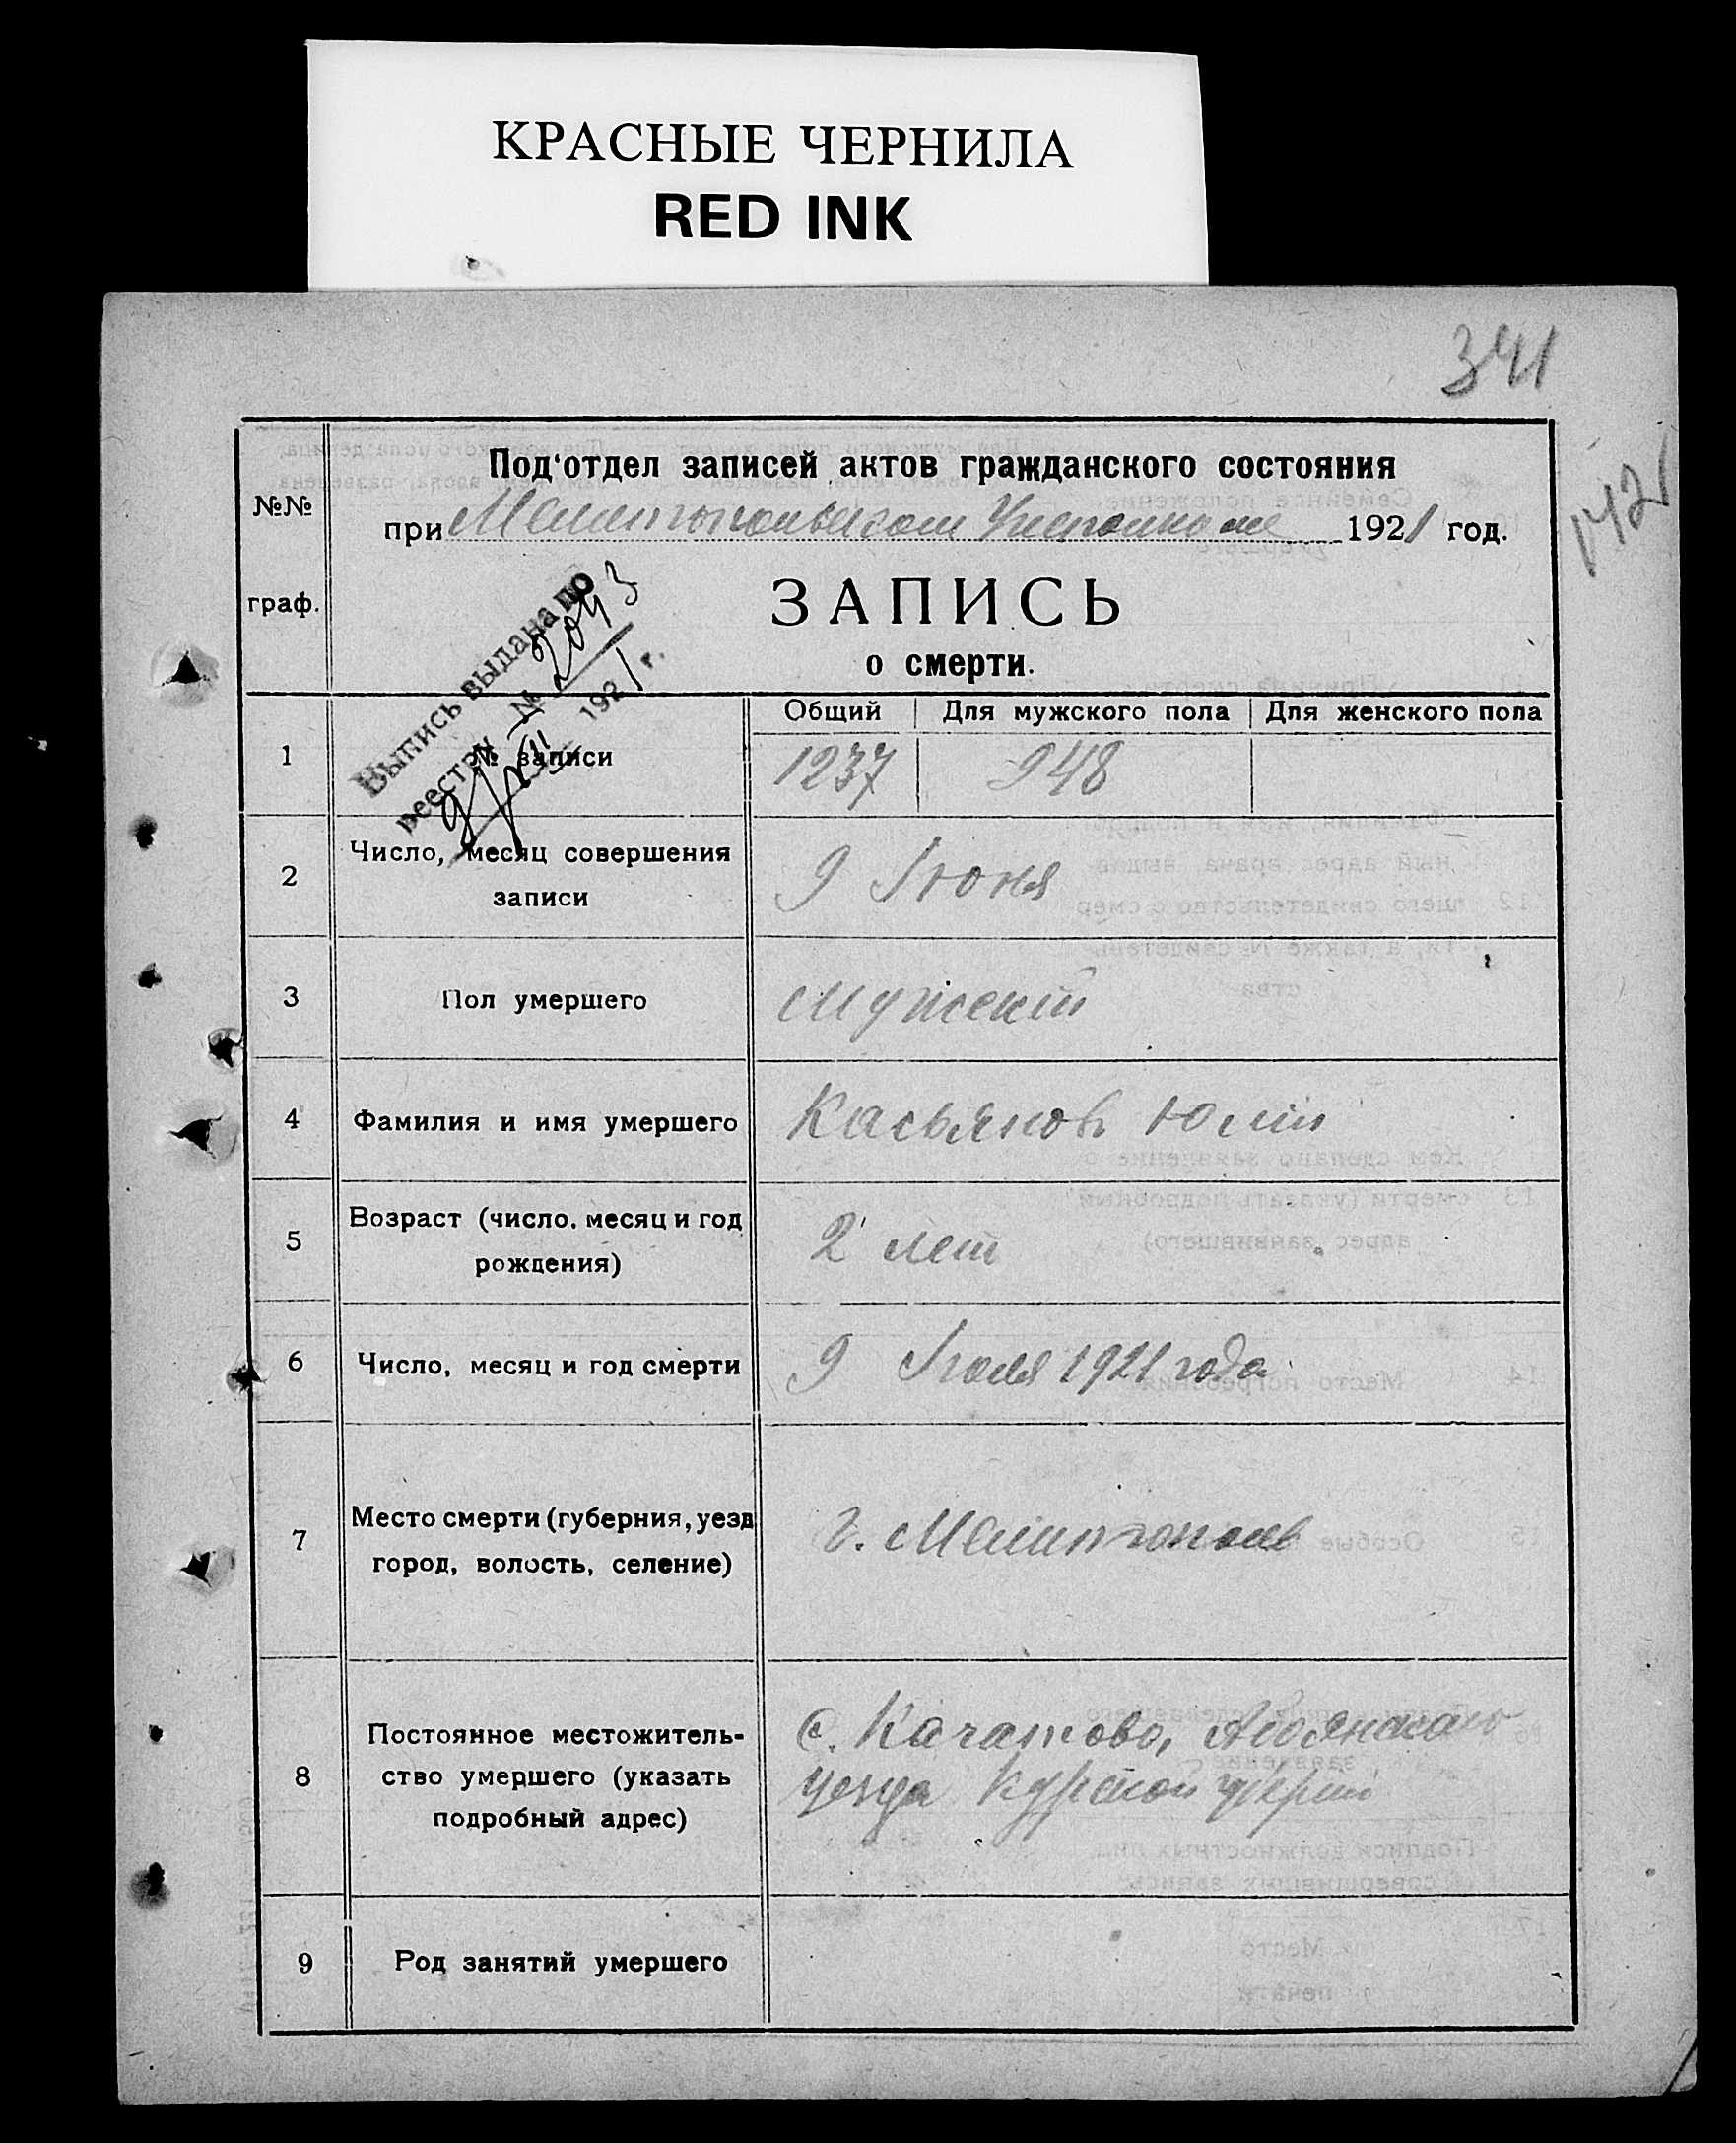 КРАСНЫЕ ЧЕРНИЛА
RED INK
341
1421
Под'отдел записей актов гражданского состояния
№№
при Мелитопольском Уисполкоме 1921 год.
граф.
ЗАПИСЬ
о смерти.
Выпись выдана по
реестру № 2043
1921 г.
Общий Для мужского пола Для женского пола
1 № записи 1237 948
2 Число, месяц совершения записи 9 Июня
3 Пол умершего мужской
4 Фамилия и имя умершего Касьянов Юлий
5 Возраст (число. месяц и год рождения) 2 лет
6 Число, месяц и год смерти 9 Июля 1921 года
7 Место смерти (губерния, уезд город, волость, селение) г. Мелитополь
8 Постоянное местожитель-
ство умершего (указать
подробный адрес)
с. Качатово,
уезда Курской губернии
9 Род занятий умершего